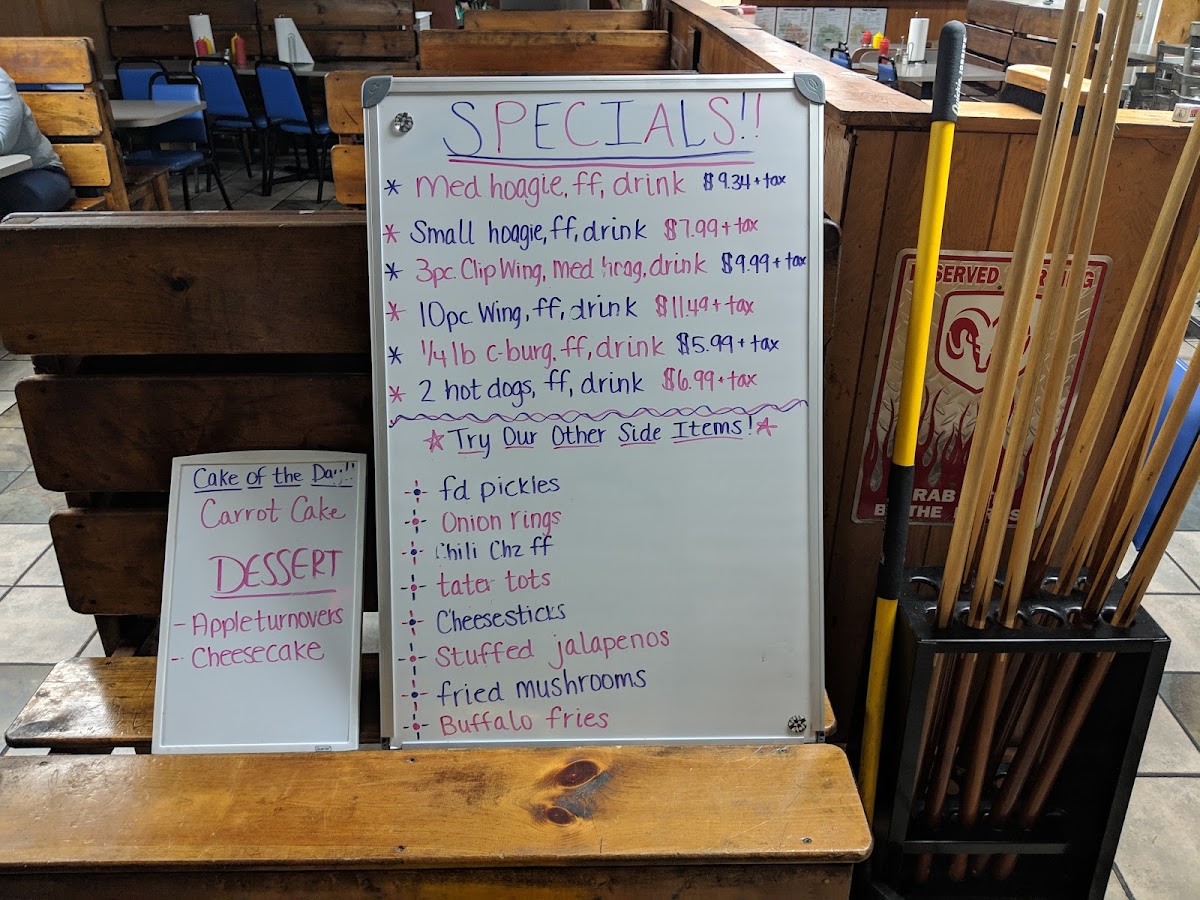 SPECIALS!!
* Med hoagie, ff, drink $9.34 + tax
* Small hoagie, ff, drink $7.99 + tax
* 3pc. Clip Wing, Med hoag, drink $9.99 + tax
* 10pc Wing, ff, drink $11.49 + tax
* 1/4 lb c-burg, ff, drink $5.99 + tax
* 2 hot dogs, ff, drink $6.99 + tax
Try Our Other Side Items!
fd pickles
Onion rings
Chili Chz ff
tater tots
Cheesesticks
Stuffed jalapenos
fried mushrooms
Buffalo fries
Cake of the Day!!
Carrot Cake
DESSERT
- Apple turnovers
- Cheesecake